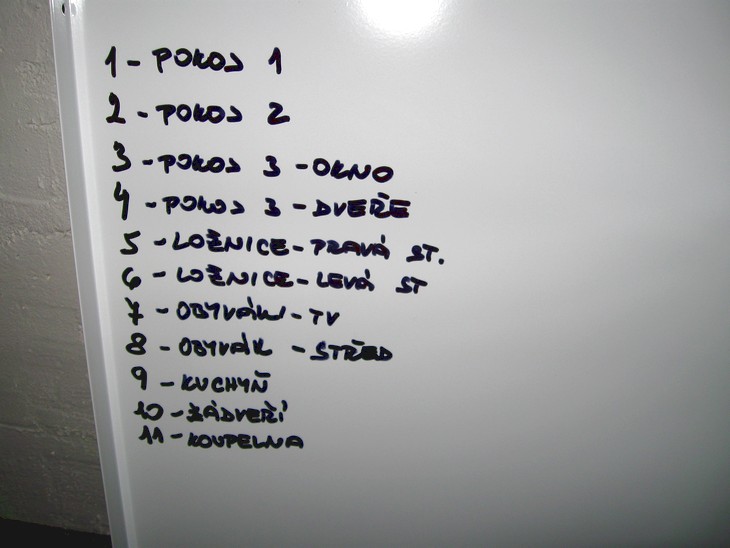 1 - POKOJ 1
2 - POKOJ 2
3 - POKOJ 3 - OKNO
4 - POKOJ 3 - DVEŘE
5 - LOŽNICE - PRAVÁ ST.
6 - LOŽNICE - LEVÁ ST
7 - OBYVÁK - TV
8 - OBYVÁK - STŘED
9 - KUCHYŇ
10 - ZÁDVEŘÍ
11 - KOUPELNA